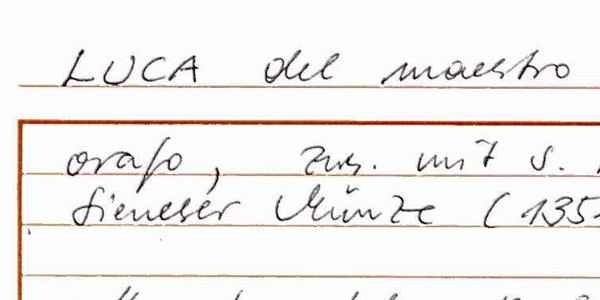 LUCA del maestro
orafo, zus. mit s.
Sieneser Münze (135